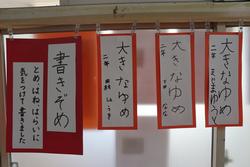 書きぞめ
とめ、はね、はらいに
気をつけて書きました
大きなゆめ
二年
大きなゆめ
二年
大きなゆめ
二年